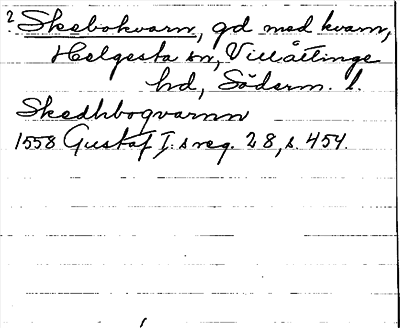 ? Skebokvarn, gd med kvarn,
Helgesta sn, Villåttinge
hd, Söderm. l.
Skedhbogvarnn
1558 Gustaf I:s reg. 28, s. 454.